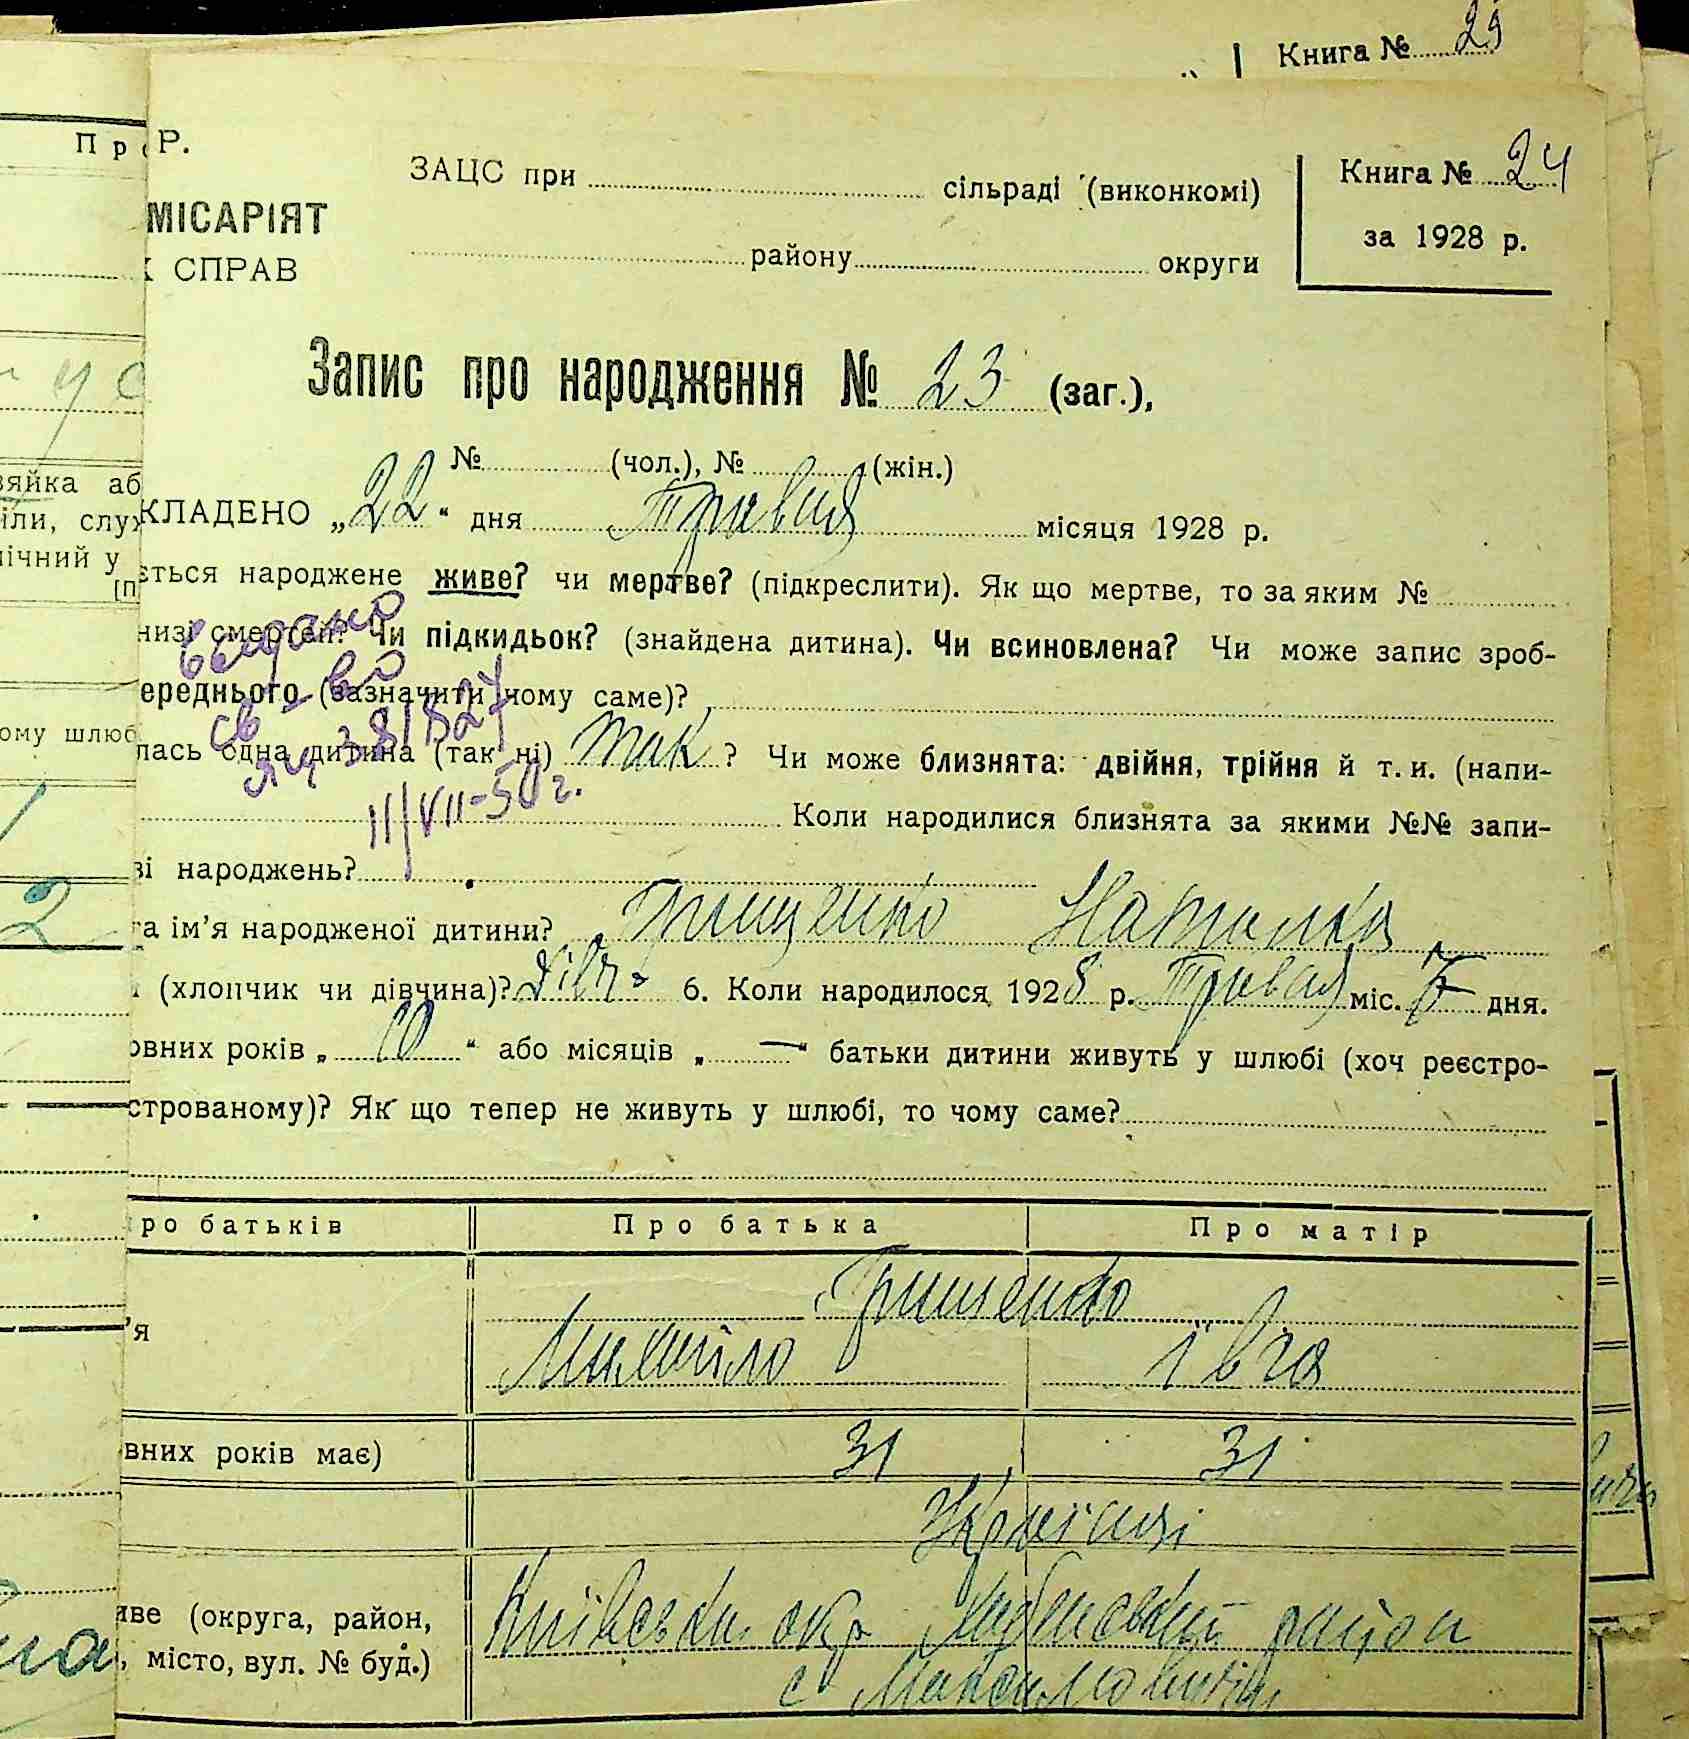 Книга № 25
Р.
ЗАЦС при сільраді (виконкомі)
Книга № 24
МІСАРІЯТ
за 1928 р.
району округи
СПРАВ
Запис про народження № 23 (заг.),
№ (чол.), № (жін.)
КЛАДЕНО „22“ дня Травня місяця 1928 р.
ється народжене живе? чи мертве? (підкреслити). Як що мертве, то за яким №
низі смертей? Чи підкидьок? (знайдена дитина). Чи всиновлена? Чи може запис зроб-
ереднього (зазначити чому саме)?
лась одна дитина (так ні) так ? Чи може близнята: двійня, трійня й т. и. (напи-
Коли народилися близнята за якими №№ запи-
ві народжень?
видано
св-во
11/VII-50 г.
та ім’я народженої дитини? Грищенко Наталка
(хлопчик чи дівчина)? дівч. 6. Коли народилося 1928 р. Травня міс. 7 дня.
овних років „10“ або місяців „—“ батьки дитини живуть у шлюбі (хоч реєстро-
строваному)? Як що тепер не живуть у шлюбі, то чому саме?
ро батьків Про батька Про матір
Грищенко
’я Михайло Івга
вних років має) 31 31
Українці
иве (округа, район, Київська окр. район
, місто, вул. № буд.) с Максимовичі
Про
зяйка аб
іли, служ
ічний у
[п
ому шлюб
2